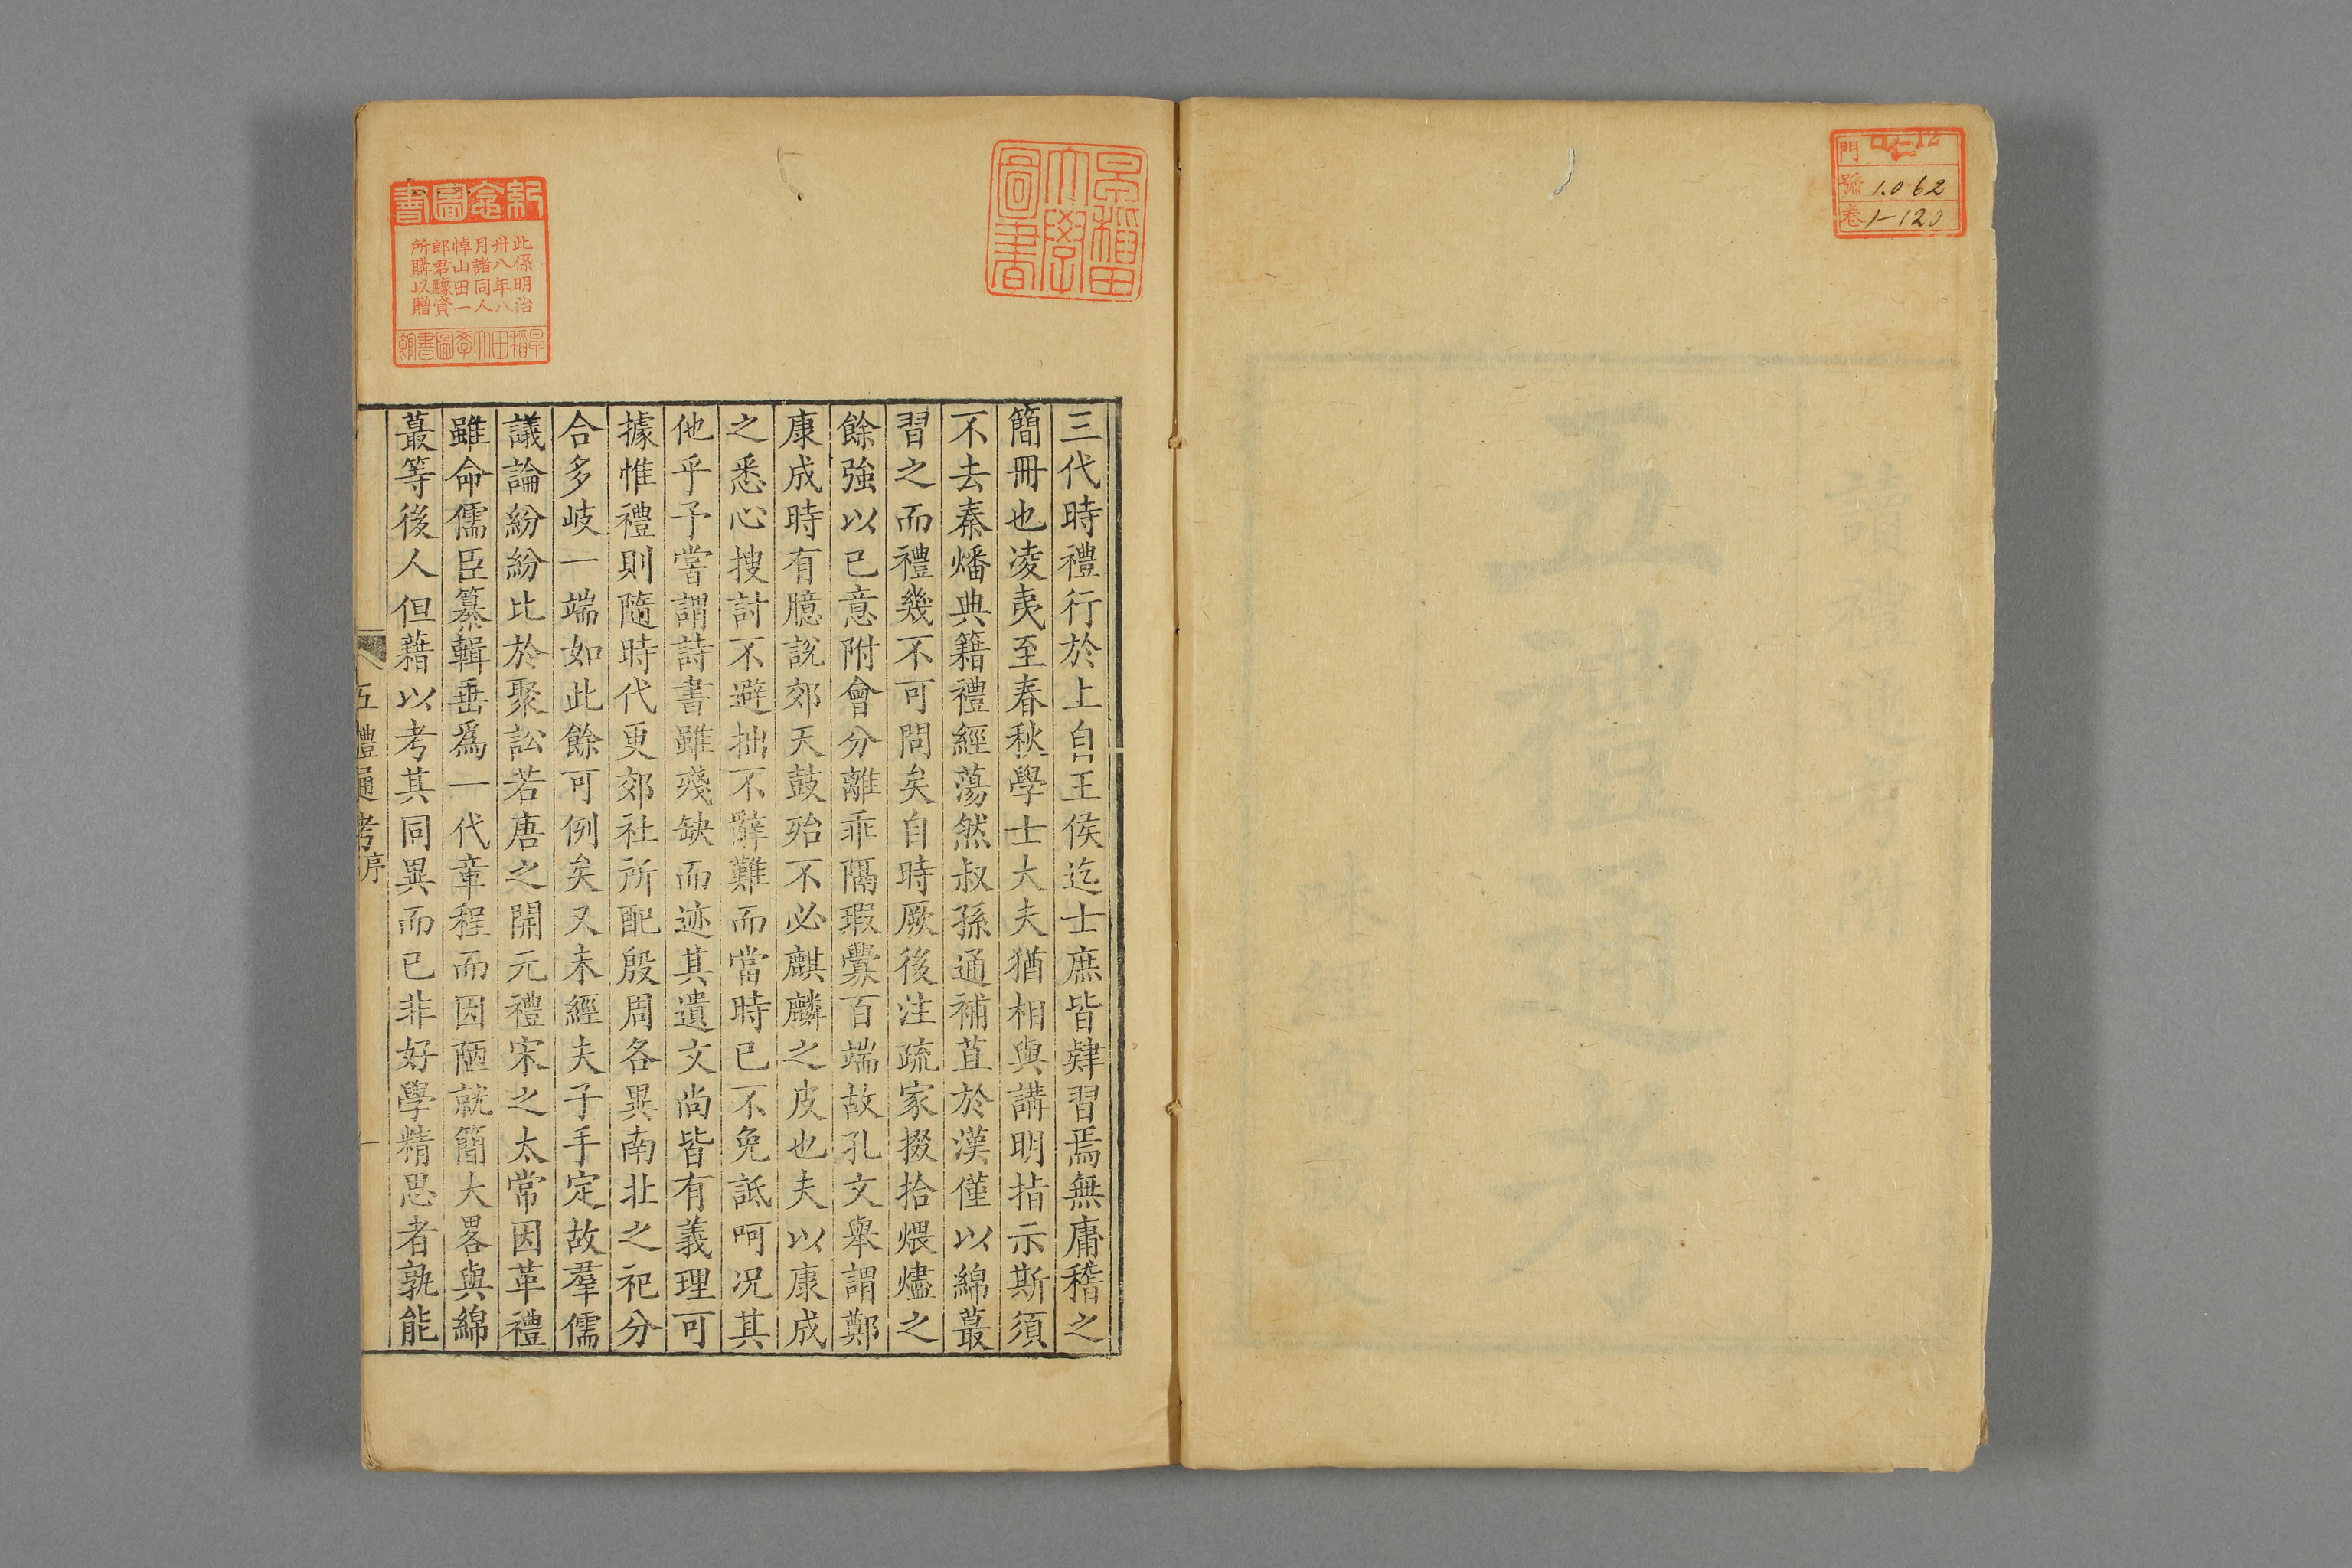 門 仁
號 1.062
卷 1-120
早稻田大學圖書
三代時禮行於上自王侯迄士庶皆肄習焉無庸稽之
簡冊也凌夷至春秋學士大夫猶相與講明指示斯須
不去秦燔典籍禮經蕩然叔孫通補苴於漢僅以綿蕞
習之而禮幾不可問矣自時厥後注疏家掇拾煨燼之
餘強以已意附會分離乖隔瑕釁百端故孔文舉謂鄭
康成時有臆説郊天鼓殆不必麒麟之皮也夫以康成
之悉心搜討不避拙不辭難而當時已不免詆呵况其
他乎予嘗謂詩書雖殘缺而迹其遺文尚皆有義理可
據惟禮則隨時代更郊社所配殷周各異南北之祀分
合多岐一端如此餘可例矣又未經夫子手定故羣儒
議論紛紛比於聚訟若唐之開元禮宋之太常因革禮
雖命儒臣纂輯垂爲一代章程而因陋就簡大畧與綿
蕞等後人但藉以考其同異而已非好學精思者孰能
五禮通考 序 一
紀念圖書
此係明治
卅八年八
月諸同人
悼山田一
郎君醵資
所購以贈
早稻田大學圖書館
五禮通考
讀禮通考附